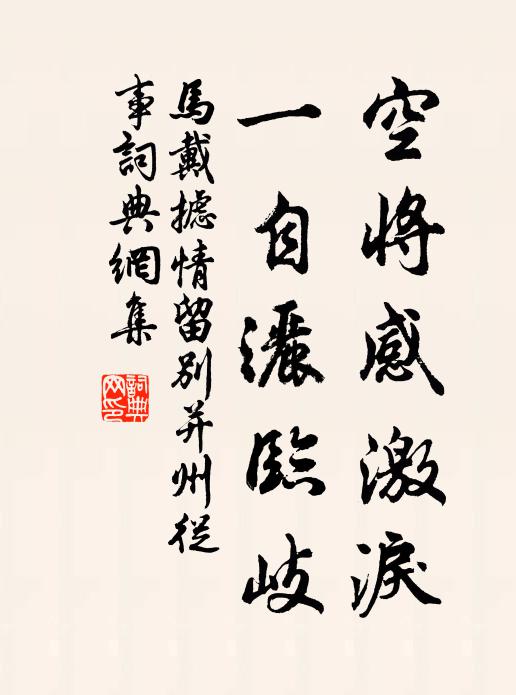 空將感激淚
一自灑臨岐
馬戴攄情留別并州從
事詞典網集
詞典網印